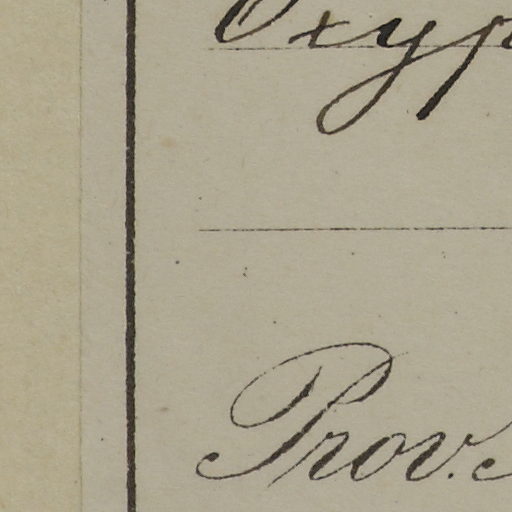 Oxyp
Prov.